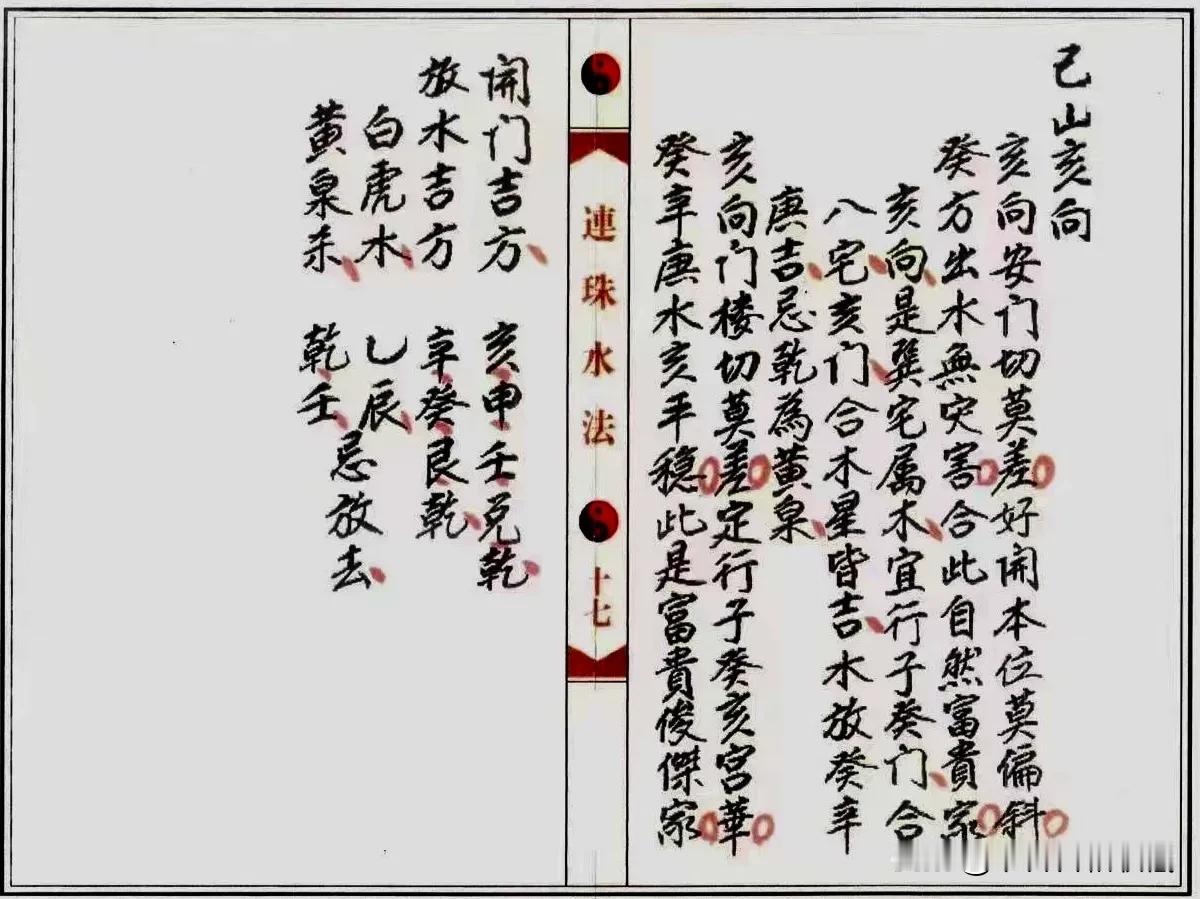 巳山亥向
亥向安门切莫差好開本位莫偏斜
癸方出水無灾害合此自然富貴家
亥向是巽宅属木宜行子癸门合
八宅亥门合木星皆吉水放癸辛
庚吉忌乾為黄泉
亥向门楼切莫差定行子癸亥宫華
癸辛庚水亥平穏此是富貴俊傑家
連珠水法
十七
開门吉方 亥申壬兑乾
放水吉方 辛癸艮乾
白虎水 乙辰
黄泉杀 乾壬
忌放去